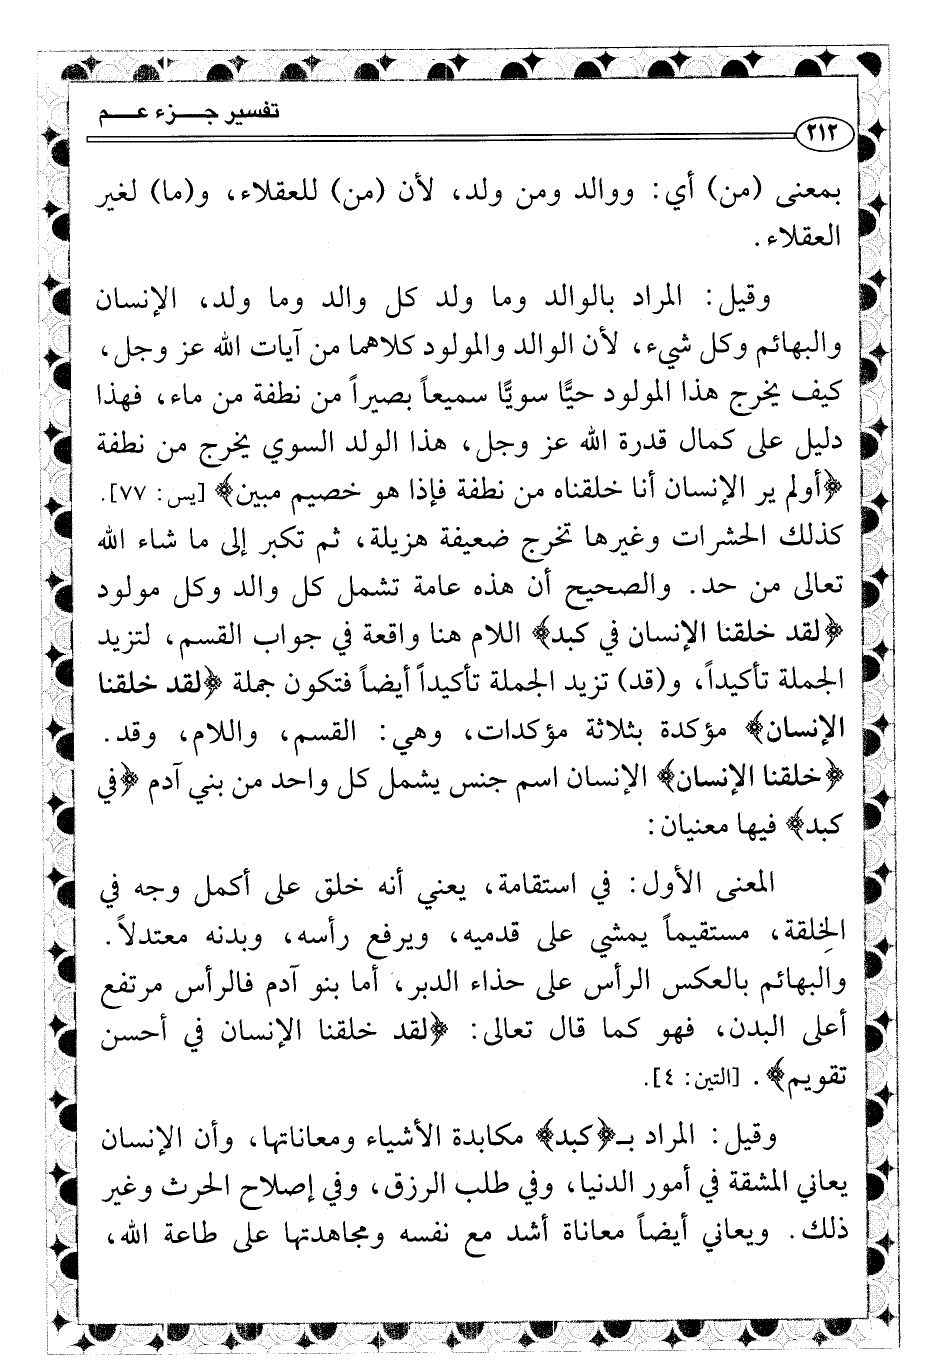 تفسير جـــزء عـــم
٢١٢
بمعنى (من) أي: ووالد ومن ولد، لأن (من) للعقلاء، و(ما) لغير
العقلاء.
وقيل: المراد بالوالد وما ولد كل والد وما ولد، الإنسان
والبهائم وكل شيء، لأن الوالد والمولود كلاهما من آيات الله عز وجل،
كيف يخرج هذا المولود حيًّا سويًّا سميعاً بصيراً من نطفة من ماء، فهذا
دليل على كمال قدرة الله عز وجل، هذا الولد السوي يخرج من نطفة
﴿أولم ير الإنسان أنا خلقناه من نطفة فإذا هو خصيم مبين﴾ [يس: ٧٧].
كذلك الحشرات وغيرها تخرج ضعيفة هزيلة، ثم تكبر إلى ما شاء الله
تعالى من حد. والصحيح أن هذه عامة تشمل كل والد وكل مولود
﴿لقد خلقنا الإنسان في كبد﴾ اللام هنا واقعة في جواب القسم، لتزيد
الجملة تأكيداً، و(قد) تزيد الجملة تأكيداً أيضاً فتكون جملة ﴿لقد خلقنا
الإنسان﴾ مؤكدة بثلاثة مؤكدات، وهي: القسم، واللام، وقد.
﴿خلقنا الإنسان﴾ الإنسان اسم جنس يشمل كل واحد من بني آدم ﴿في
كبد﴾ فيها معنيان:
المعنى الأول: في استقامة، يعني أنه خلق على أكمل وجه في
الخِلقة، مستقيماً يمشي على قدميه، ويرفع رأسه، وبدنه معتدلاً.
والبهائم بالعكس الرأس على حذاء الدبر، أما بنو آدم فالرأس مرتفع
أعلى البدن، فهو كما قال تعالى: ﴿لقد خلقنا الإنسان في أحسن
تقويم﴾. [التين: ٤].
وقيل: المراد بـ﴿كبد﴾ مكابدة الأشياء ومعاناتها، وأن الإنسان
يعاني المشقة في أمور الدنيا، وفي طلب الرزق، وفي إصلاح الحرث وغير
ذلك. ويعاني أيضاً معاناة أشد مع نفسه ومجاهدتها على طاعة الله،